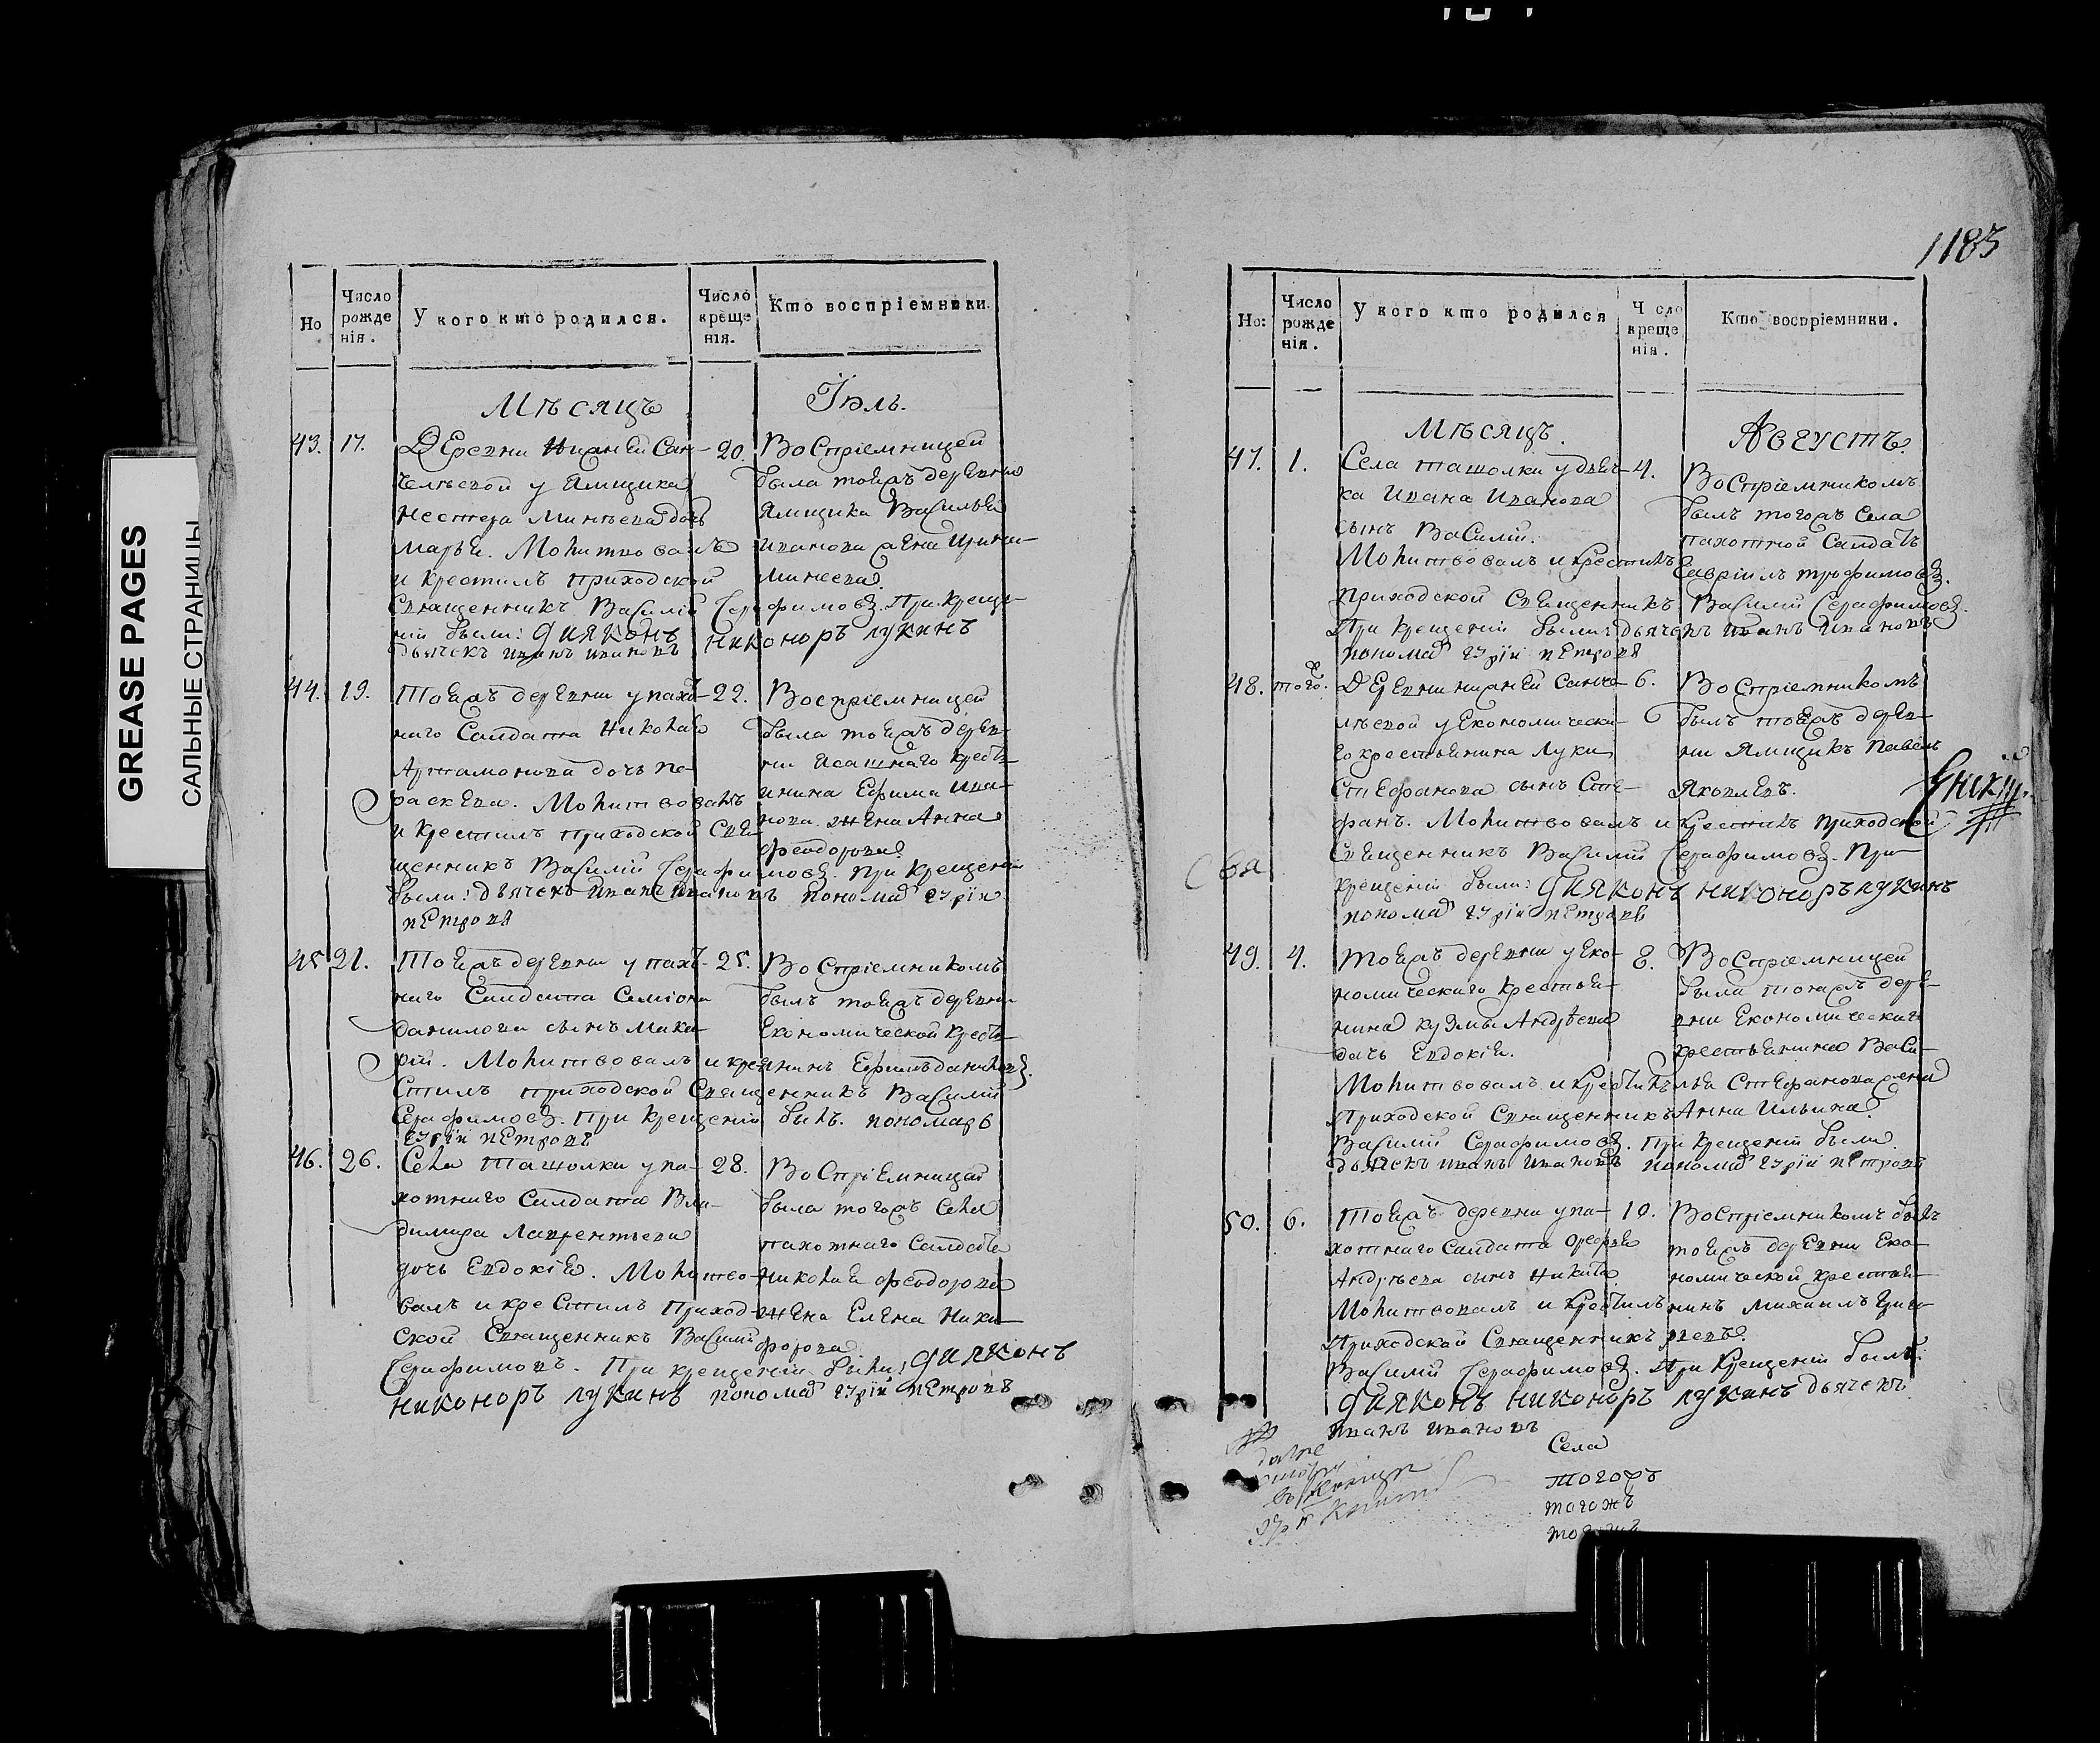 1183
GREASE PAGES
САЛЬНЫЕ СТРАНИЦЫ
Но
Число рожде нія.
У кого кто родился.
Число креще нія.
Кто воспріемники.
Мѣсяцъ Іюль.
43. 17.
Деревни Нижней Сан-
челѣевой у Ямщика
Нестера Минѣева дочь
марья. Молитвовалъ
и крестилъ приходской
Священникъ Василій Серафимовъ. При креще-
ніи были: діяконъ никоноръ лукинъ
дьячекъ иванъ ивановъ
20.
Воспріемницей
была тояжъ деревни
Ямщика Василья
иванова жена Ирина
Минеева.
44. 19.
Тояжъ деревни у пахо-
тнаго Салдата Николая
Артамонова дочь Па-
раскева. Молитвовалъ
и крестилъ приходской Свя-
щенникъ Василій Серафимовъ. При крещеніи
были: дьячекъ иванъ ивановъ пономарь гурій
петровъ
22.
Воспріемницей
была тояжъ дерев-
ни Ясашнаго кресть-
янина Ефима Ива-
нова жена Анна
Феодорова.
45 21.
Тояжъ деревни у пахо-
тнаго Салдата Симіона
данилова сынъ Мака-
рій. Молитвовалъ и кре-
стилъ приходской Священникъ Василій
Серафимовъ. При крещеніи былъ. пономарь
гурій петровъ
25.
Воспріемникомъ
былъ тояжъ деревни
Економической кресть-
янинъ Ефимъ даниловъ.
46. 26.
Села Ташолки у па-
хотнаго Салдата Вла-
димира Лаврентьева
дочь Евдокія. Молитво-
валъ и крестилъ Приход-
ской Священникъ Василій
Серафимовъ. При крещеніи были: діяконъ
никоноръ лукинъ пономарь гурій петровъ
28.
Воспріемницей
была тогожъ Села
пахотнаго Салдата
Николая Феодорова
жена Елена Ники-
форова
Но:
Число рожде нія.
У кого кто родился
Ч сло креще нія.
Кто воспріемники.
Мѣсяцъ. Августъ.
47. 1.
Села ташолки у дьяч-
ка Ивана Иванова
сынъ Василій.
Молитвовалъ и крестилъ
приходской Священникъ Василій Серафимовъ.
При крещеніи были: дьячекъ иванъ ивановъ
пономарь гурій петровъ
4.
Воспріемникомъ
былъ тогожъ Села
пахотной Салдатъ
Гавріилъ трофимовъ.
48. того.
Деревни нижней Санче-
лѣевой у Економическа-
го крестьянина Луки
Стефанова сынъ Сте-
фанъ. Молитвовалъ и крестилъ приходской
Священникъ Василій Серафимовъ. При
крещеніи были: діяконъ никоноръ лукинъ
пономарь гурій петровъ
6.
Воспріемникомъ
былъ тояжъ дерев-
ни Ямщикъ Павелъ
Яковлевъ.
49. 4.
Тояжъ деревни у Еко-
номическаго крестья-
нина кузмы Андрѣева
дочь Евдокія.
Молитвовалъ и крестилъ
Приходской Священникъ
Василій Серафимовъ. При крещеніи были
дьячекъ иванъ ивановъ пономарь гурій петровъ
8.
Воспріемницей
была тояжъ дере-
вни Економическаго
крестьянина Васи-
лья Стефанова жена
Анна Ильина.
50. 6.
Тояжъ деревни у па-
хотнаго Салдата
Андрѣева сынъ Никита.
Молитвовалъ и крестилъ
Приходской Священникъ
Василій Серафимовъ. При крещеніи были:
діяконъ никоноръ лукинъ дьячекъ
иванъ ивановъ
10.
Воспріемникомъ былъ
тояжъ деревни Еко-
номической крестья-
нинъ михаилъ
Села
тогожъ
тогожъ